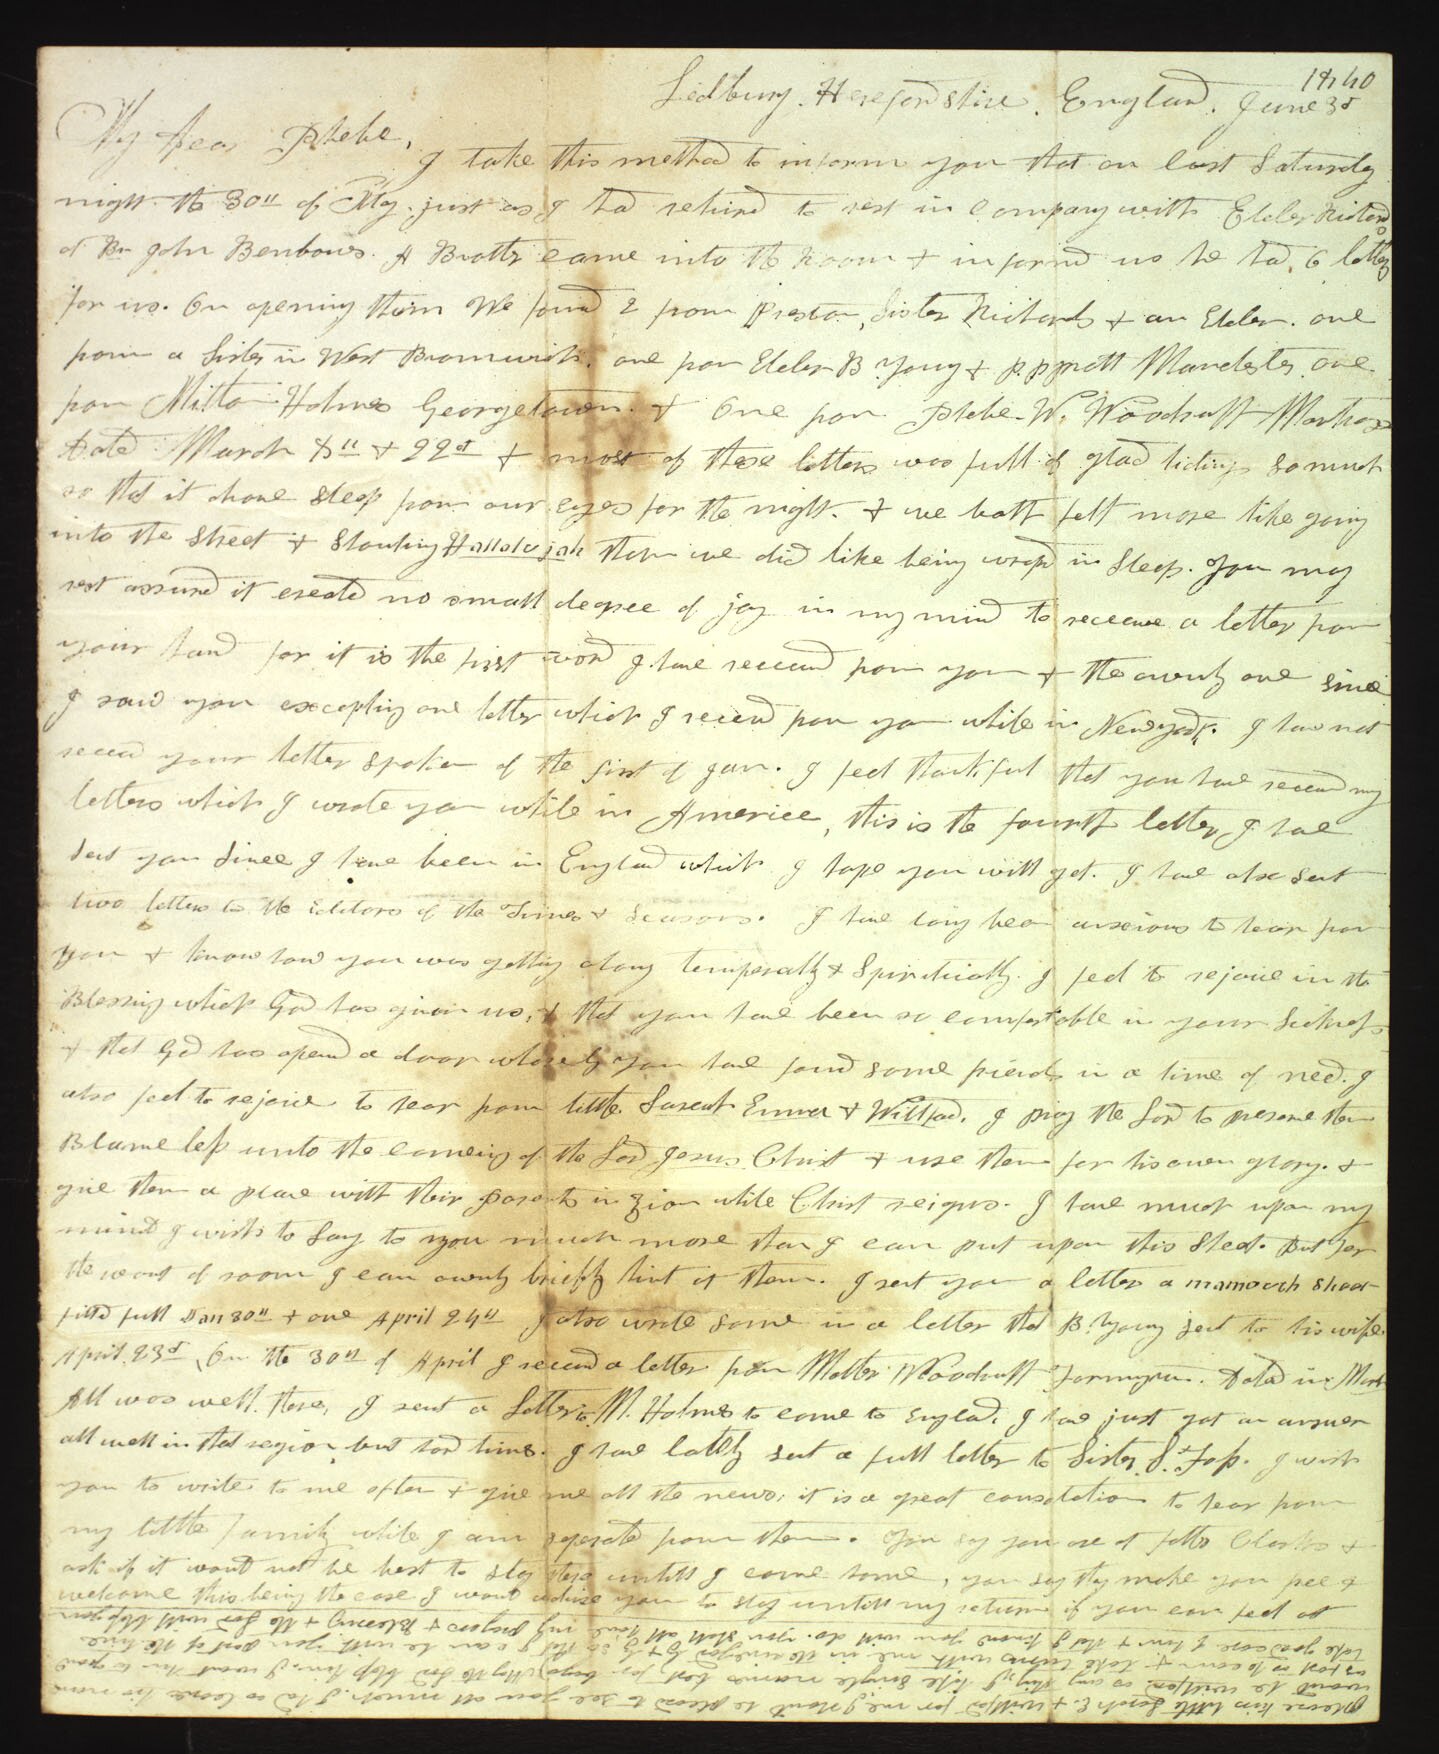 Ledbury. Herefordshire. England. June 3d 1840
My Dear Phebe,
I take this method to inform you that on last Saturday
night the 30th of May. just as I had retired to rest in company with Elder Richards
at Br John Benbows. A Brother came into the Room & informd us he had 6 letters
for us. On opening them We found 2 from Preston, Sister Richards & an Elder. one
from a Sister in West Bromwich. one from Elder B Young & P. P. Pratt Manchester one
from Milton Holmes Georgetown. & One from Phebe W. Woodruff Montrose
Dated March 8th & 22nd & most of these letters was full of glad tidings so much
so that it drove sleep from our eyes for the night. & we both felt more like going
into the street & shouting Hallelujah than we did like being wrapd in sleep. You may
rest assured it created no small degree of joy in my mind to receeve a letter from
your hand for it is the first word I have receievd from you & the ownly one since
I saw you excepting one letter which I receievd from you while in New York. I have not
receievd your letter spoken of the first of Jan. I feel thankful that you have receievd my
letters which I wrote you while in Americe, this is the fourth letter, I have
sent you since I have been in England which I hope you will get. I have also sent
two letters to the Editors of the Times & Seasons. I have long been anxious to hear from
you & know how you was getting along temperally & Spiritually. I feel to rejoice in the
Blessing which God has given us, & that you have been so comfortable in your sickness
& that God has opend a door whareby you have found some friends in a time of need. I
also feel to rejoice to hear from little Sarah Emma & Willford. I pray the Lord to preserve them
Blameless unto the coming of the Lord Jesus Christ & use them for his own glory. &
give them a place with their Parents in Zion while Christ reigns. I have much upon my
mind I wish to say to you much more than I can put upon this Sheet. But for
the want of room I can ownly briefly hint at them. I sent you a letter a mamouth sheet
filld full Jan 30th & one April 24th I also wrote some in a letter that B. Young sent to his wife
April 23d, On the 30th of April I receievd a letter from Mother Woodruff Farmington. Dated in March
All was well there, I sent a Letter to M. Holmes to come to England, I have just got an answer
all well in that region but hard times. I have lately sent a full letter to Sister S. Foss. I wish
you to write to me often & give me all the news, it is a great consolation to hear from
my little Family while I am seperate from them. You say you are at father Clarks &
ask if it would not be best to stay there untill I come home, you say they make you free &
welcome this being the case I would advise you to stay untill my return if you can feel at
take good care of them & that I know you will do. you shall all have my prayers & Blessing & the Lord will bless you
as fast as he can & take turns with me in the so that I can be with you part of the time
would be willford so any thing I like single names best for boys, May the Lord bless him, I want him to grow
Please kiss little Sarah E. & Willford for me, I should be pleased to see you all much. I had as leave his name